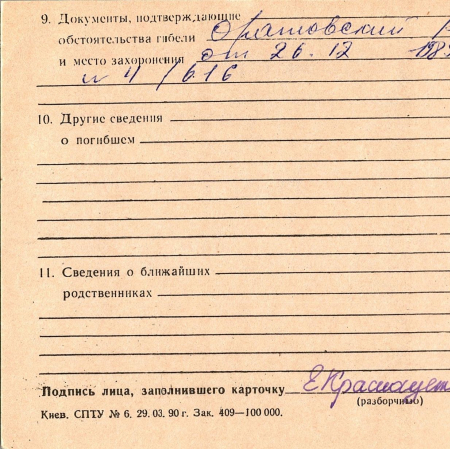 9. Документы, подтверждающие
обстоятельства гибели Оратовский
и место захоронения от 26.12 198
н 4/616
10. Другие сведения
о погибшем
11. Сведения о ближайших
родственниках
Подпись лица, заполнившего карточку
(разборчиво)
Киев. СПТУ № 6. 29. 03. 90 г. Зак. 409—100 000.